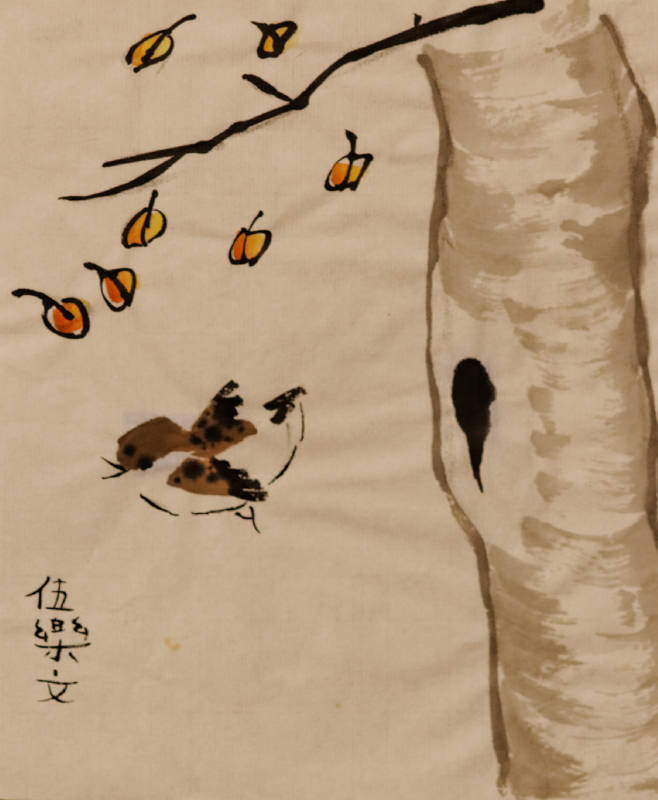 伍樂文